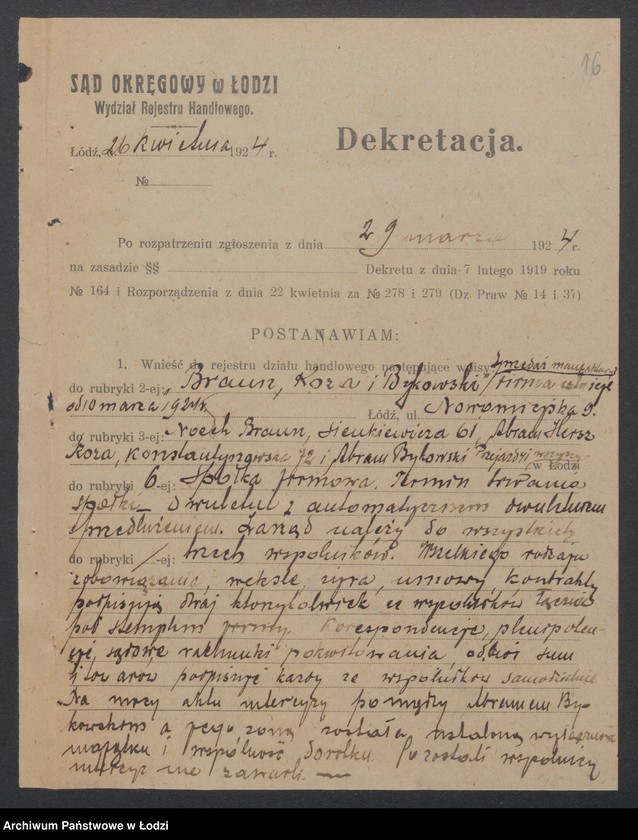 16
SĄD OKRĘGOWY w ŁODZI
Wydział Rejestru Handlowego.
Dekretacja.
Łódź, d. 26 kwietnia 1924 r.
№
Po rozpatrzeniu zgłoszenia z dnia 29 marca 1924 r.
na zasadzie §§ Dekretu z dnia 7 lutego 1919 roku
№ 164 i Rozporządzenia z dnia 22 kwietnia za № 278 i 279 (Dz. Praw № 14 i 37)
POSTANAWIAM:
1. Wnieść do rejestru działu handlowego następujące wpisy: Sprzedaż
do rubryki 2-ej: „Braun, Koza i Bykowski" firma istnieje
od 10 marca 1924 r. Łódź, ul. Nowomiejska 9.
do rubryki 3-ej: Noech Braun, Sienkiewicza 61, Abram Hersz
Koza, Konstantynowska 72 i Abram Bykowski Przejazd wszyscy w Łodzi
do rubryki 6. Spółka firmowa. Termin trwania
spółki dwuletni z automatycznem dwuletniem
przedłużeniem. Zarząd należy do wszystkich
do rubryki -ej: trzech wspólników. Wszelkiego rodzaju
zobowiązania, weksle, żyra, umowy kontrakty
podpisują dwaj którzykolwiek ze wspólników łącznie
pod stemplem firmy. Korespondencję, plenipoten-
cje, sądowe rachunki, pokwitowania odbioru sum
i towarów podpisuje każdy ze wspólników samodzielnie
Na mocy aktu intercyzy pomiędzy Abramem By-
kowskim a jego żoną została ustalona wyłączność
majątku i wspólność dorobku. Pozostali wspólnicy
intercyz nie zawarli.
Archiwum Państwowe w Łodzi